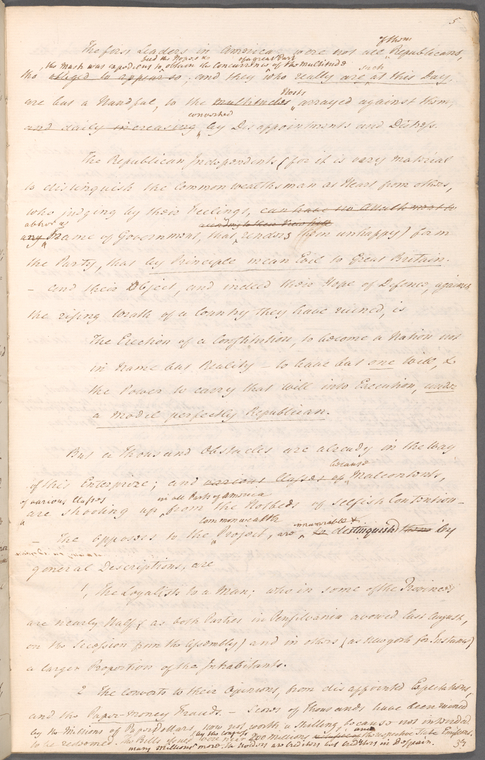 5
of them
The first Leaders in America were not all Republicans,
the Mask was expedient to obtain the Concurrence of the Multitude
tho obliged to appear so; and they who really are, at this Day, such
are but a Handful, to the multitudes Hosts arrayed against them,
and daily increasing, by Disappointments and Distress.
The Republican Independents (for it is very material
to distinguish the Common wealthsman at Heart from others,
who judging by their Feelings,
any Frame of Government, that renders them unhappy) form
the Party, that by Principle mean Evil to Great Britain.
— and their Object, and indeed their Hope of Defence, against
the rising Wrath of a Country they have ruined, is
The Erection of a Constitution, to become a Nation not
in Name but Reality — to have but one Will, &
the Power to carry that Will into Execution, under
a Model perfectly Republican.
But a thousand Obstacles are already in the Way
of this Enterprize; and various Classes of Malcontents,
of various Classes in all Parts of America
are shooting up from the Hotbeds of selfish Contention —
commonwealth
— The opposers to the Project, are distinguished by
general Descriptions, are
1, The Loyalists to a Man; who in some of the Provinces
are nearly Half, (as both Parties in Pensilvania avowed last August,
on the Secession from the Assembly) and in others (as New York for Instance)
a larger Proportion of the Inhabitants.
2 The converts to their Opinions, from disappointed Expectations,
and the Paper-money Frauds — Scores of thousands have been ruined
by the Millions of Paper dollars now not worth a Shilling, because not intended
to be redeemed. The Bills issued by the Congress were near 200 millions
many millions more. The Holders are Creditors but Creditors in Despair.